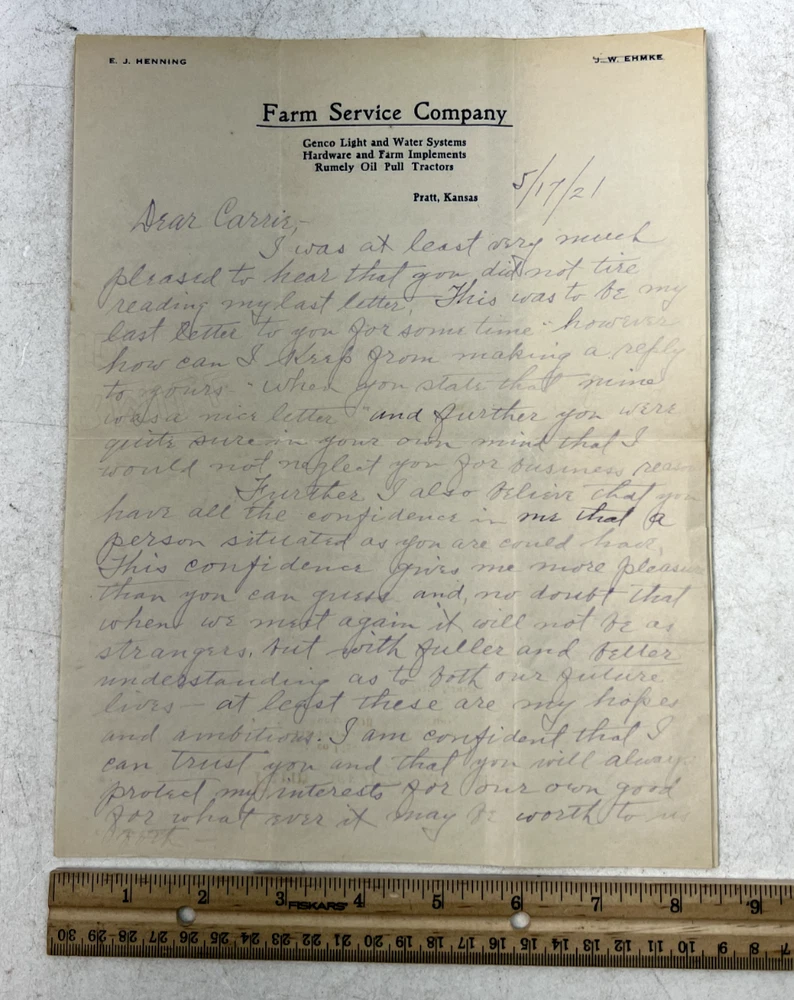 E. J. HENNING
J. W. EHMKE
Farm Service Company
Genco Light and Water Systems
Hardware and Farm Implements
Rumely Oil Pull Tractors
Pratt, Kansas
5/17/21
Dear Carrie,-
I was at least very much
pleased to hear that you did not tire
reading my last letter. This was to be my
last letter to you for some time - however
how can I keep from making a reply
to yours - when you state that "mine
was a nice letter" and further you were
quite sure in your own mind that I
would not neglect you for business reason
Further I also believe that you
have all the confidence in me that a
person situated as you are could have,
This confidence gives me more pleasure
than you can guess and, no doubt that
when we meet again it will not be as
strangers, but with fuller and better
understanding as to both our future
lives - at least these are my hopes
and ambitions. I am confident that I
can trust you and that you will always
protect my interests for our own good
for what ever it may be worth to us
FISKARS
1 2 3 4 5 6 7 8 9
30 29 28 27 26 25 24 23 22 21 20 19 18 17 16 15 14 13 12 11 10 9 8 7